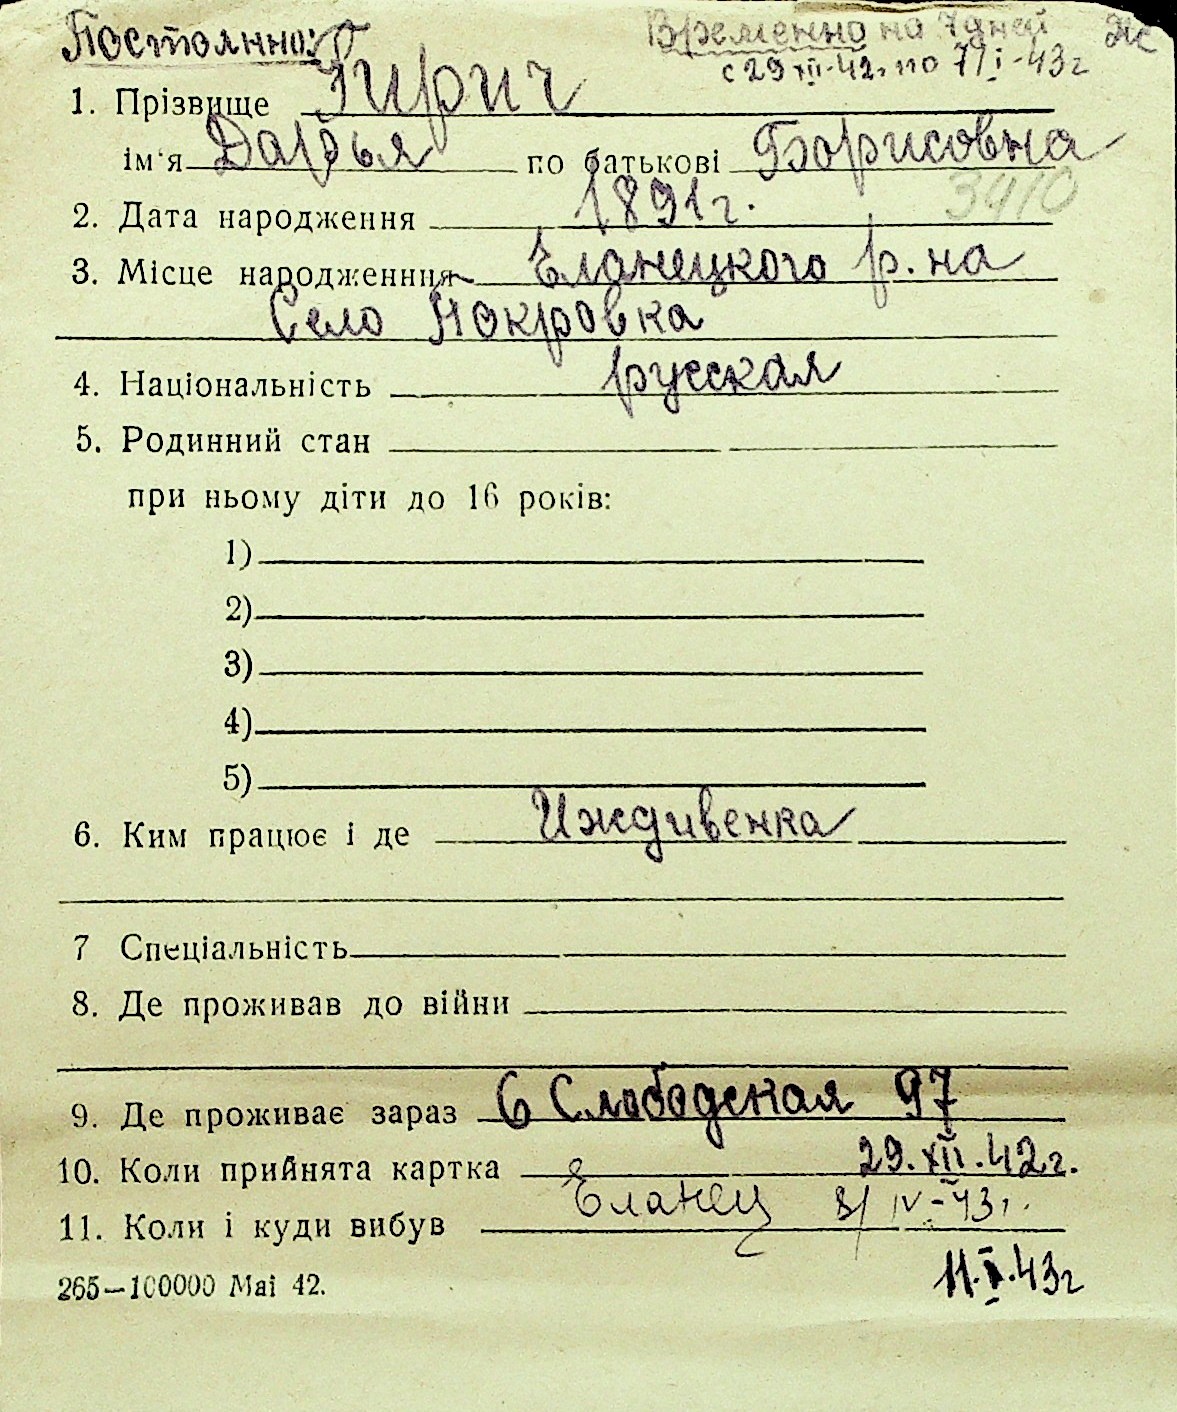 Постоянно: Временно на 7 дней
с 29 XII-42г. по 7/I-43г
1. Прізвище Гирич
ім'я Дарья по батькові Борисовна
3410
2. Дата народження 1891г.
3. Місце народженння Еланецкого р.на
Село Покровка
4. Національність русская
5. Родинний стан
при ньому діти до 16 років:
1)
2)
3)
4)
5)
6. Ким працює і де Иждивенка
7 Спеціальність
8. Де проживав до війни
9. Де проживає зараз 6 Слободская 97
10. Коли прийнята картка 29.XII.42г.
11. Коли і куди вибув Еланец 8/IV-43г.
11.I.43г
265—100000 Mai 42.